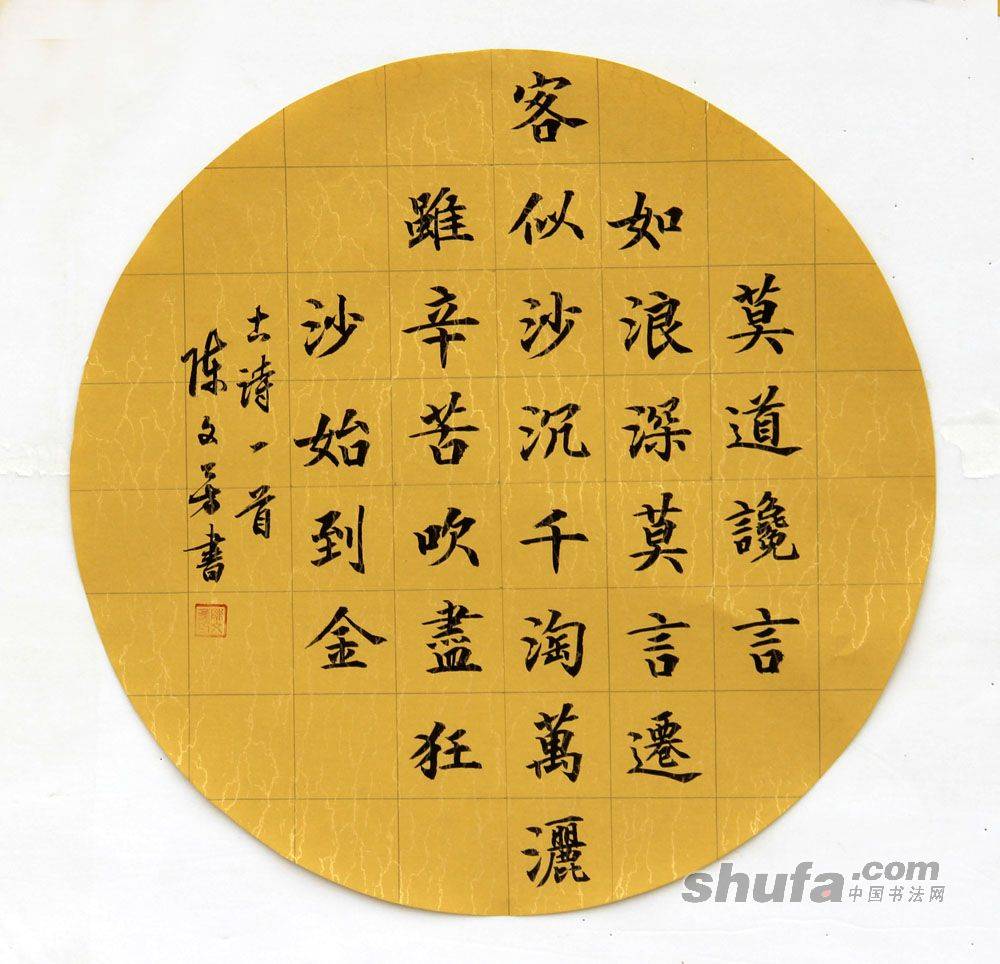 莫道讒言
如浪深莫言遷
客似沙沉千淘萬灑
雖辛苦吹盡狂
沙始到金
古詩一首
陳文
書
shufa.com
中国书法网